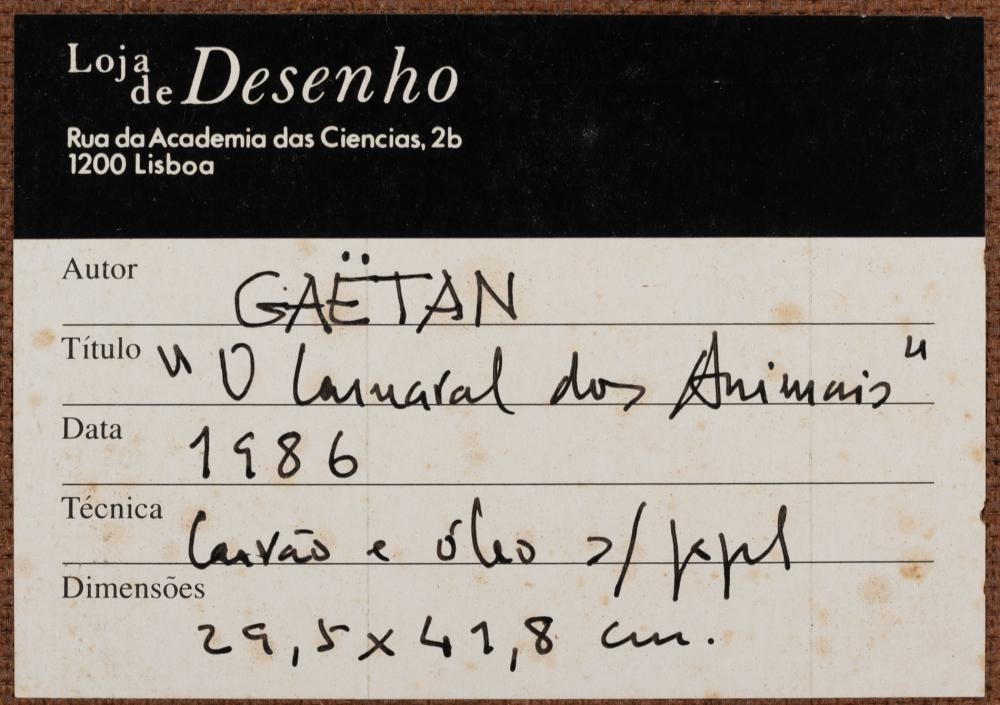 Loja de Desenho
Rua da Academia das Ciencias, 2b
1200 Lisboa
Autor GAËTAN
Título "O Carnaval dos Animais"
Data 1986
Técnica Carvão e óleo s/ papel
Dimensões
29,5 x 41,8 cm.